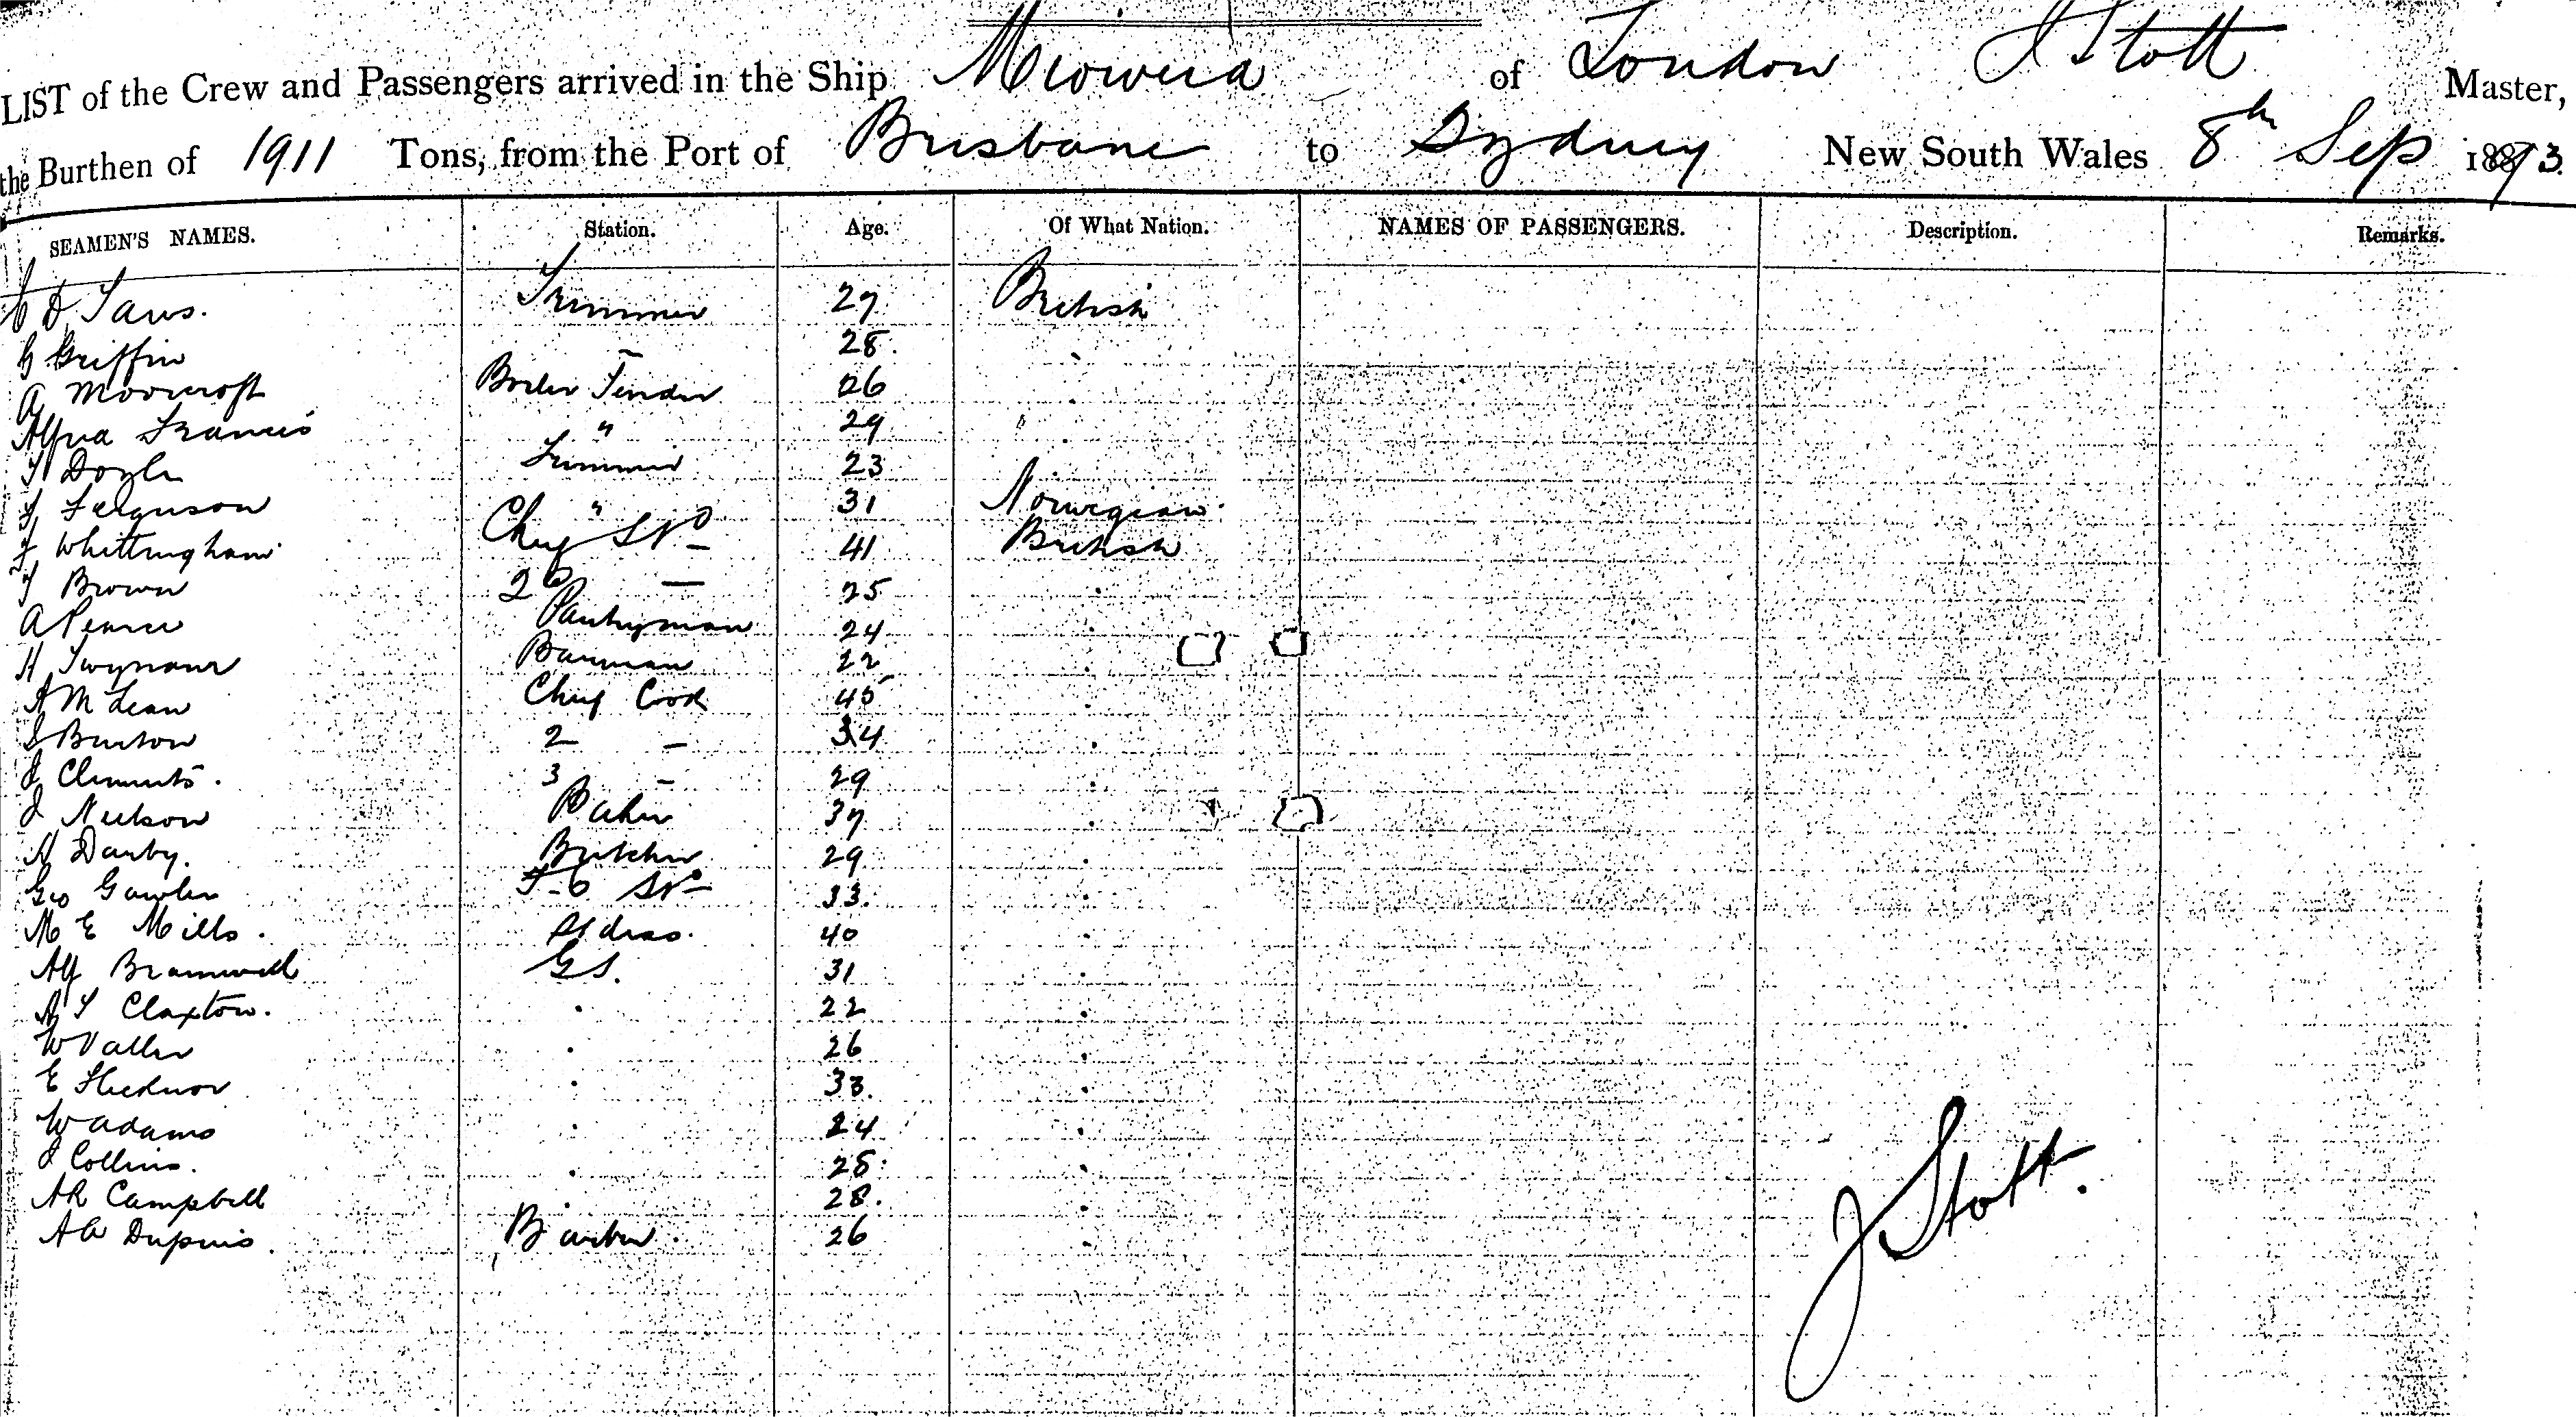 LIST of the Crew and Passengers arrived in the Ship Miowera of London J Stott Master,
the Burthen of 1911 Tons, from the Port of Brisbane to Sydney New South Wales 8th Sep 1893.
SEAMEN'S NAMES. Station. Age. Of What Nation. NAMES OF PASSENGERS. Description. Remarks.
Trimmer 27 British
G Griffin — 28.
A Moorcroft Boiler Tender 26
Francis " 29 "
Doyle Trimmer 23
Ferguson " 31 Norwegian.
Whittingham Chief 41 British
Brown 2 — 25
A Pearce Pantryman 24
H Twynam Barman 22
Lean Chief Cook 45
Burton 2 — 34
J Clements. 3 — 29
J Neilson Baker 37
H Danby. Butcher 29
Geo Gawler 33.
M E Mills. Stdrss. 40
Alf Bramwell G S. 31
Claxton. 22
W Valler 26
E 33.
W Adams 24
J Collins. 25
A R Campbell 28.
Dupuis. Barber. 26
J Stott.